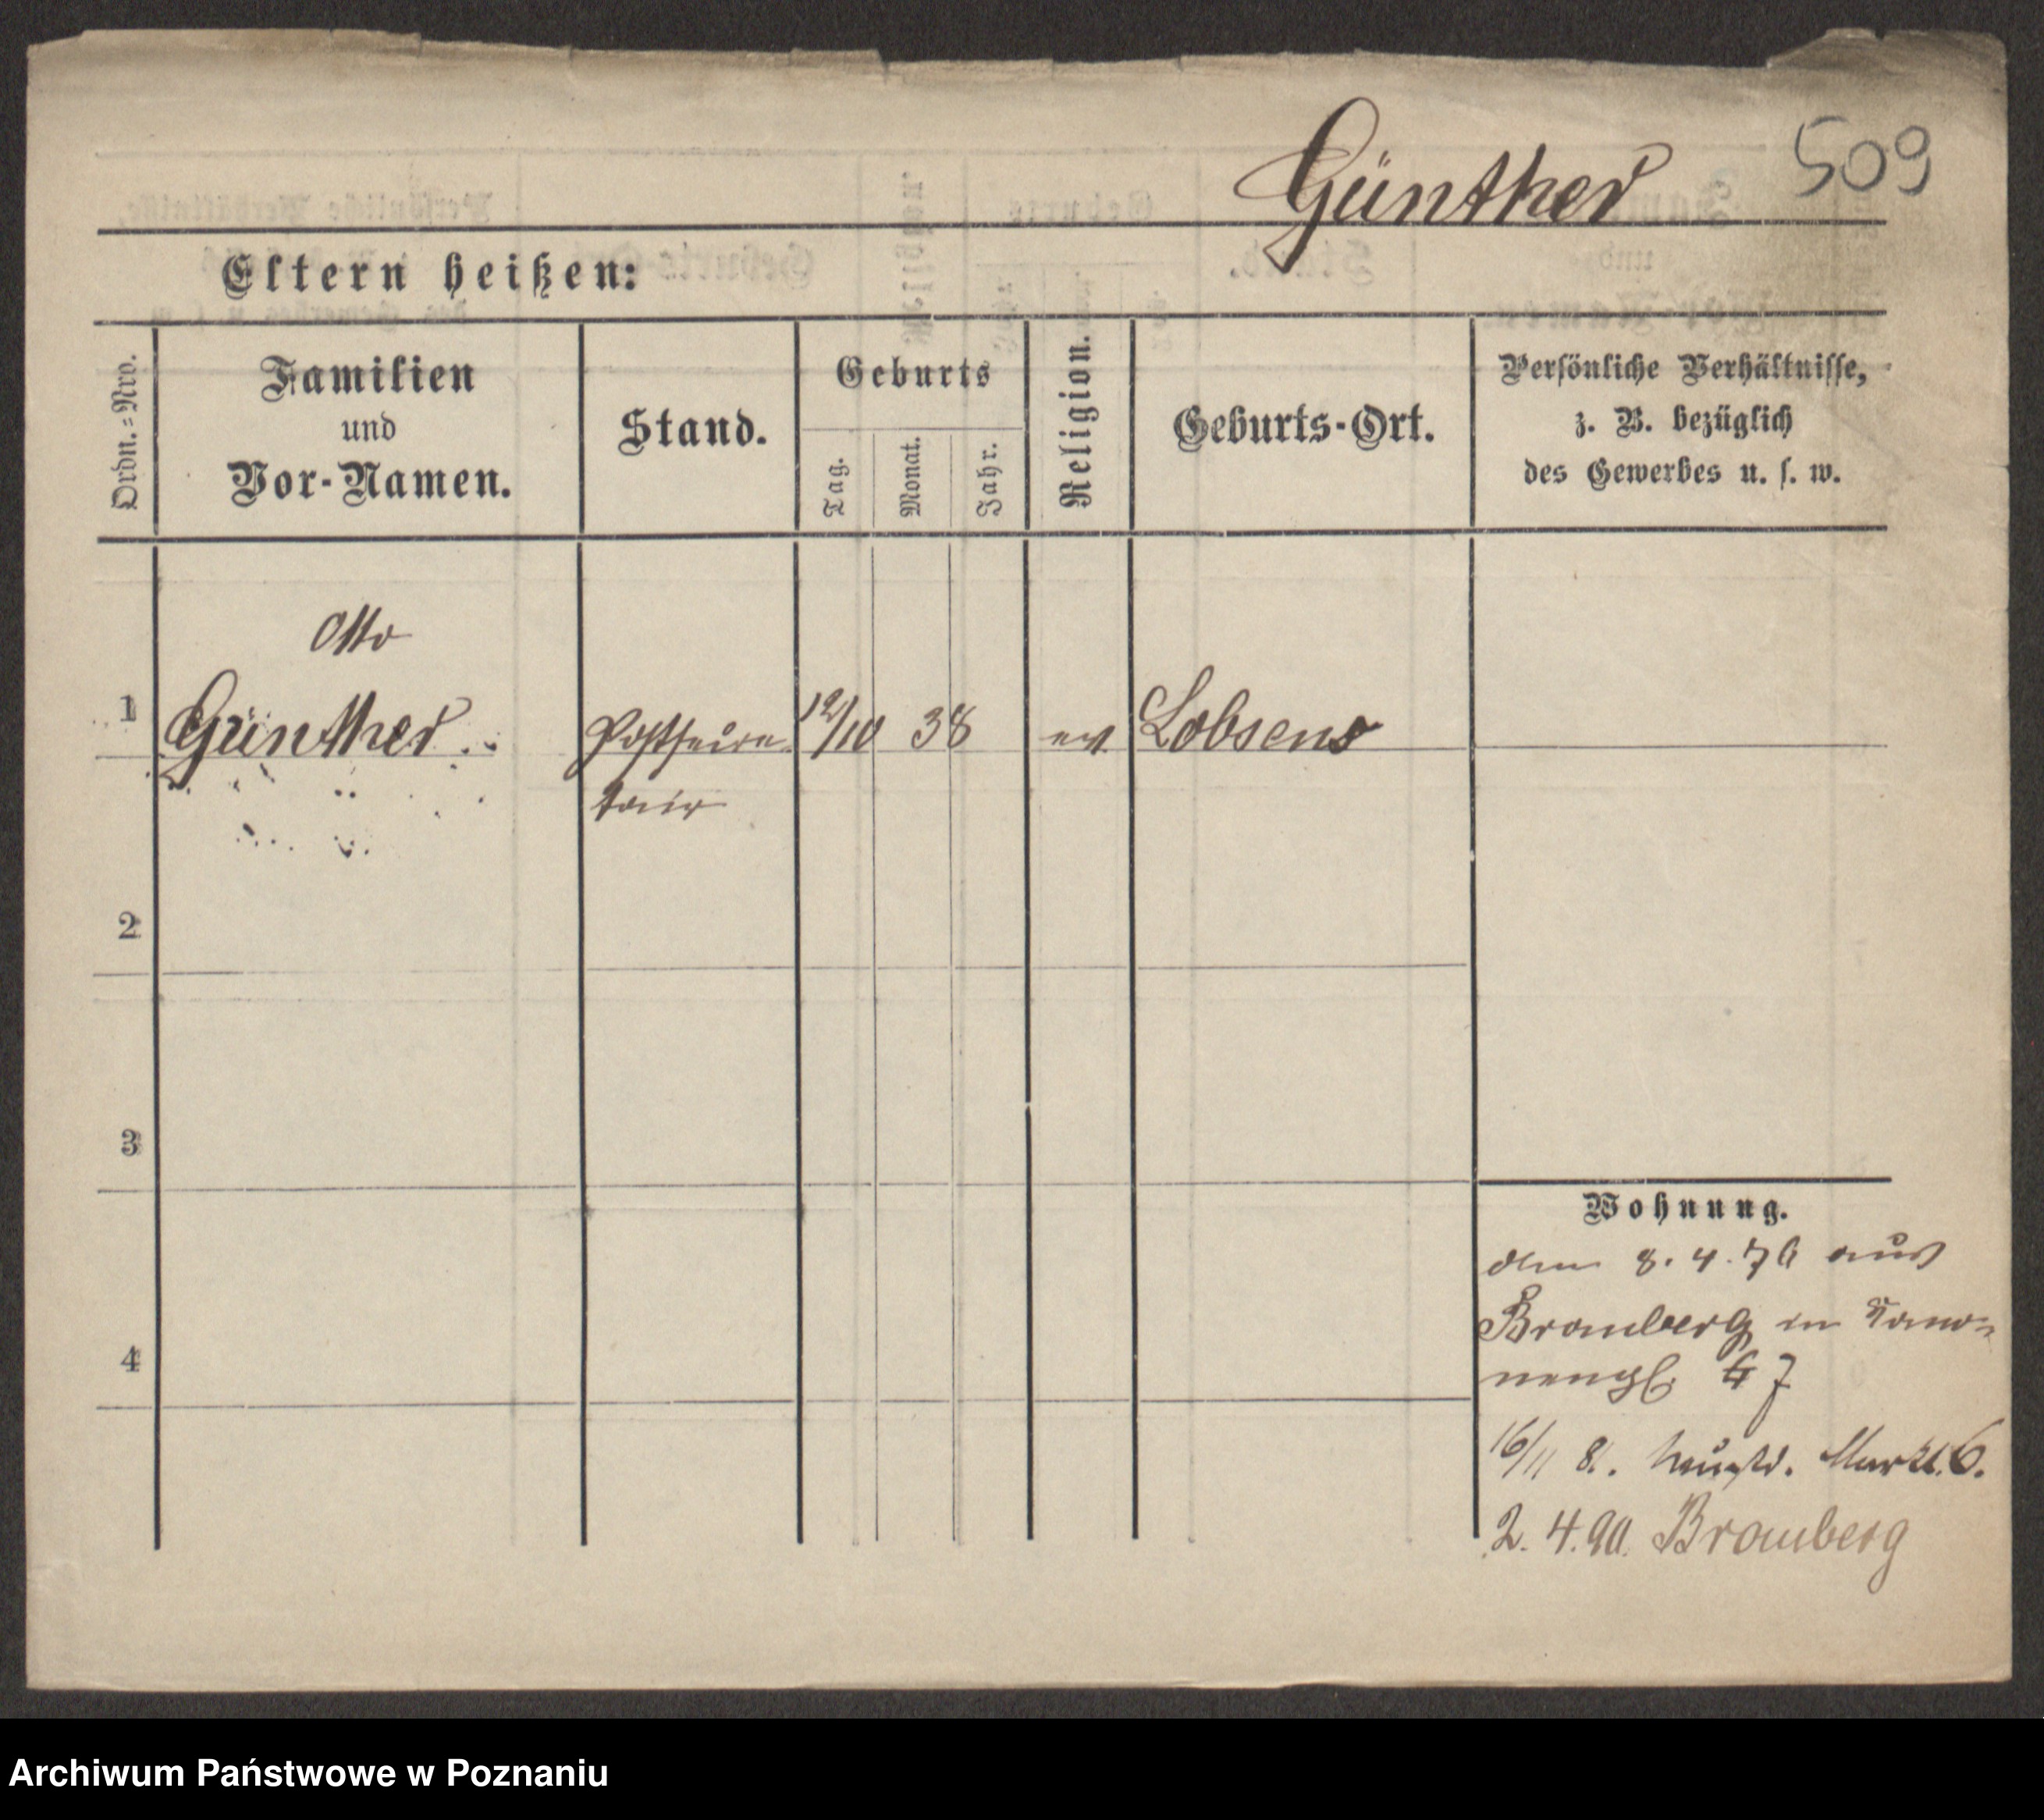 Günther 509
Eltern heißen:
Ordn.=Nro.
Familien
und
Vor-Namen.
Stand.
Geburts
Tag.
Monat.
Jahr.
Religion.
Geburts-Ort.
Persönliche Verhältnisse,
z. B. bezüglich
des Gewerbes u. s. w.
Otto
1 Günther Postsecre- 12/10 38 ev Lobsens
tair
2
3
4
Wohnung.
den 8. 4. 76 aus
Bromberg in Kano-
nengß. 7
16/11 8. Neustd. Markt 6.
2. 4. 90. Bromberg
Archiwum Państwowe w Poznaniu